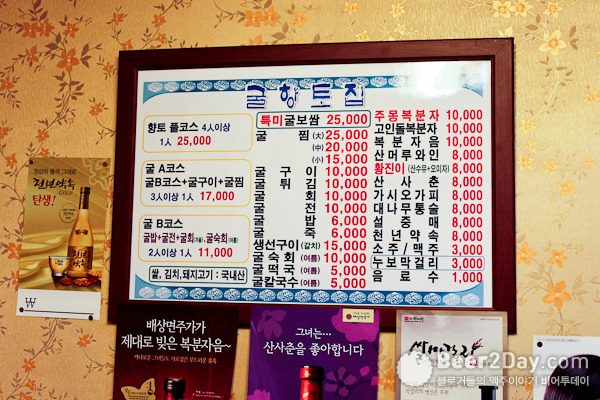 굴향토집
향토 풀코스 4人이상
1人 25,000
굴 A코스
굴B코스+굴구이+굴찜
3人이상 1人 17,000
굴 B코스
굴밥+굴전+굴회(겨울).굴숙회(여름)
2人이상 1人 11,000
쌀, 김치,돼지고기 : 국내산
특미굴보쌈 25,000
굴 찜 (大) 25,000
(中) 20,000
(小) 15,000
굴구이 10,000
굴튀김 10,000
굴회 10,000
굴전 10,000
굴밥 6,000
굴죽 6,000
생선구이 (갈치) 15,000
굴숙회 (여름) 10,000
굴떡국 5,000
굴칼국수 (여름) 5,000
주몽복분자 10,000
고인돌복분자 10,000
복분자음 10,000
산머루와인 8,000
황진이 (산수유+오미자) 8,000
산사춘 8,000
가시오가피 8,000
대나무통술 8,000
설중매 8,000
천년약속 8,000
소주/맥주 3,000
누보막걸리 3,000
음료수 1,000
정상의 품격 그대로
천년약속
GOLD
탄생!
W
배상면주가가
제대로 빚은 복분자음~
배상면주가
그녀는...
산사춘을 좋아합니다
쌀막걸리
Beer2Day.com
블로거들의 맥주이야기 비어투데이